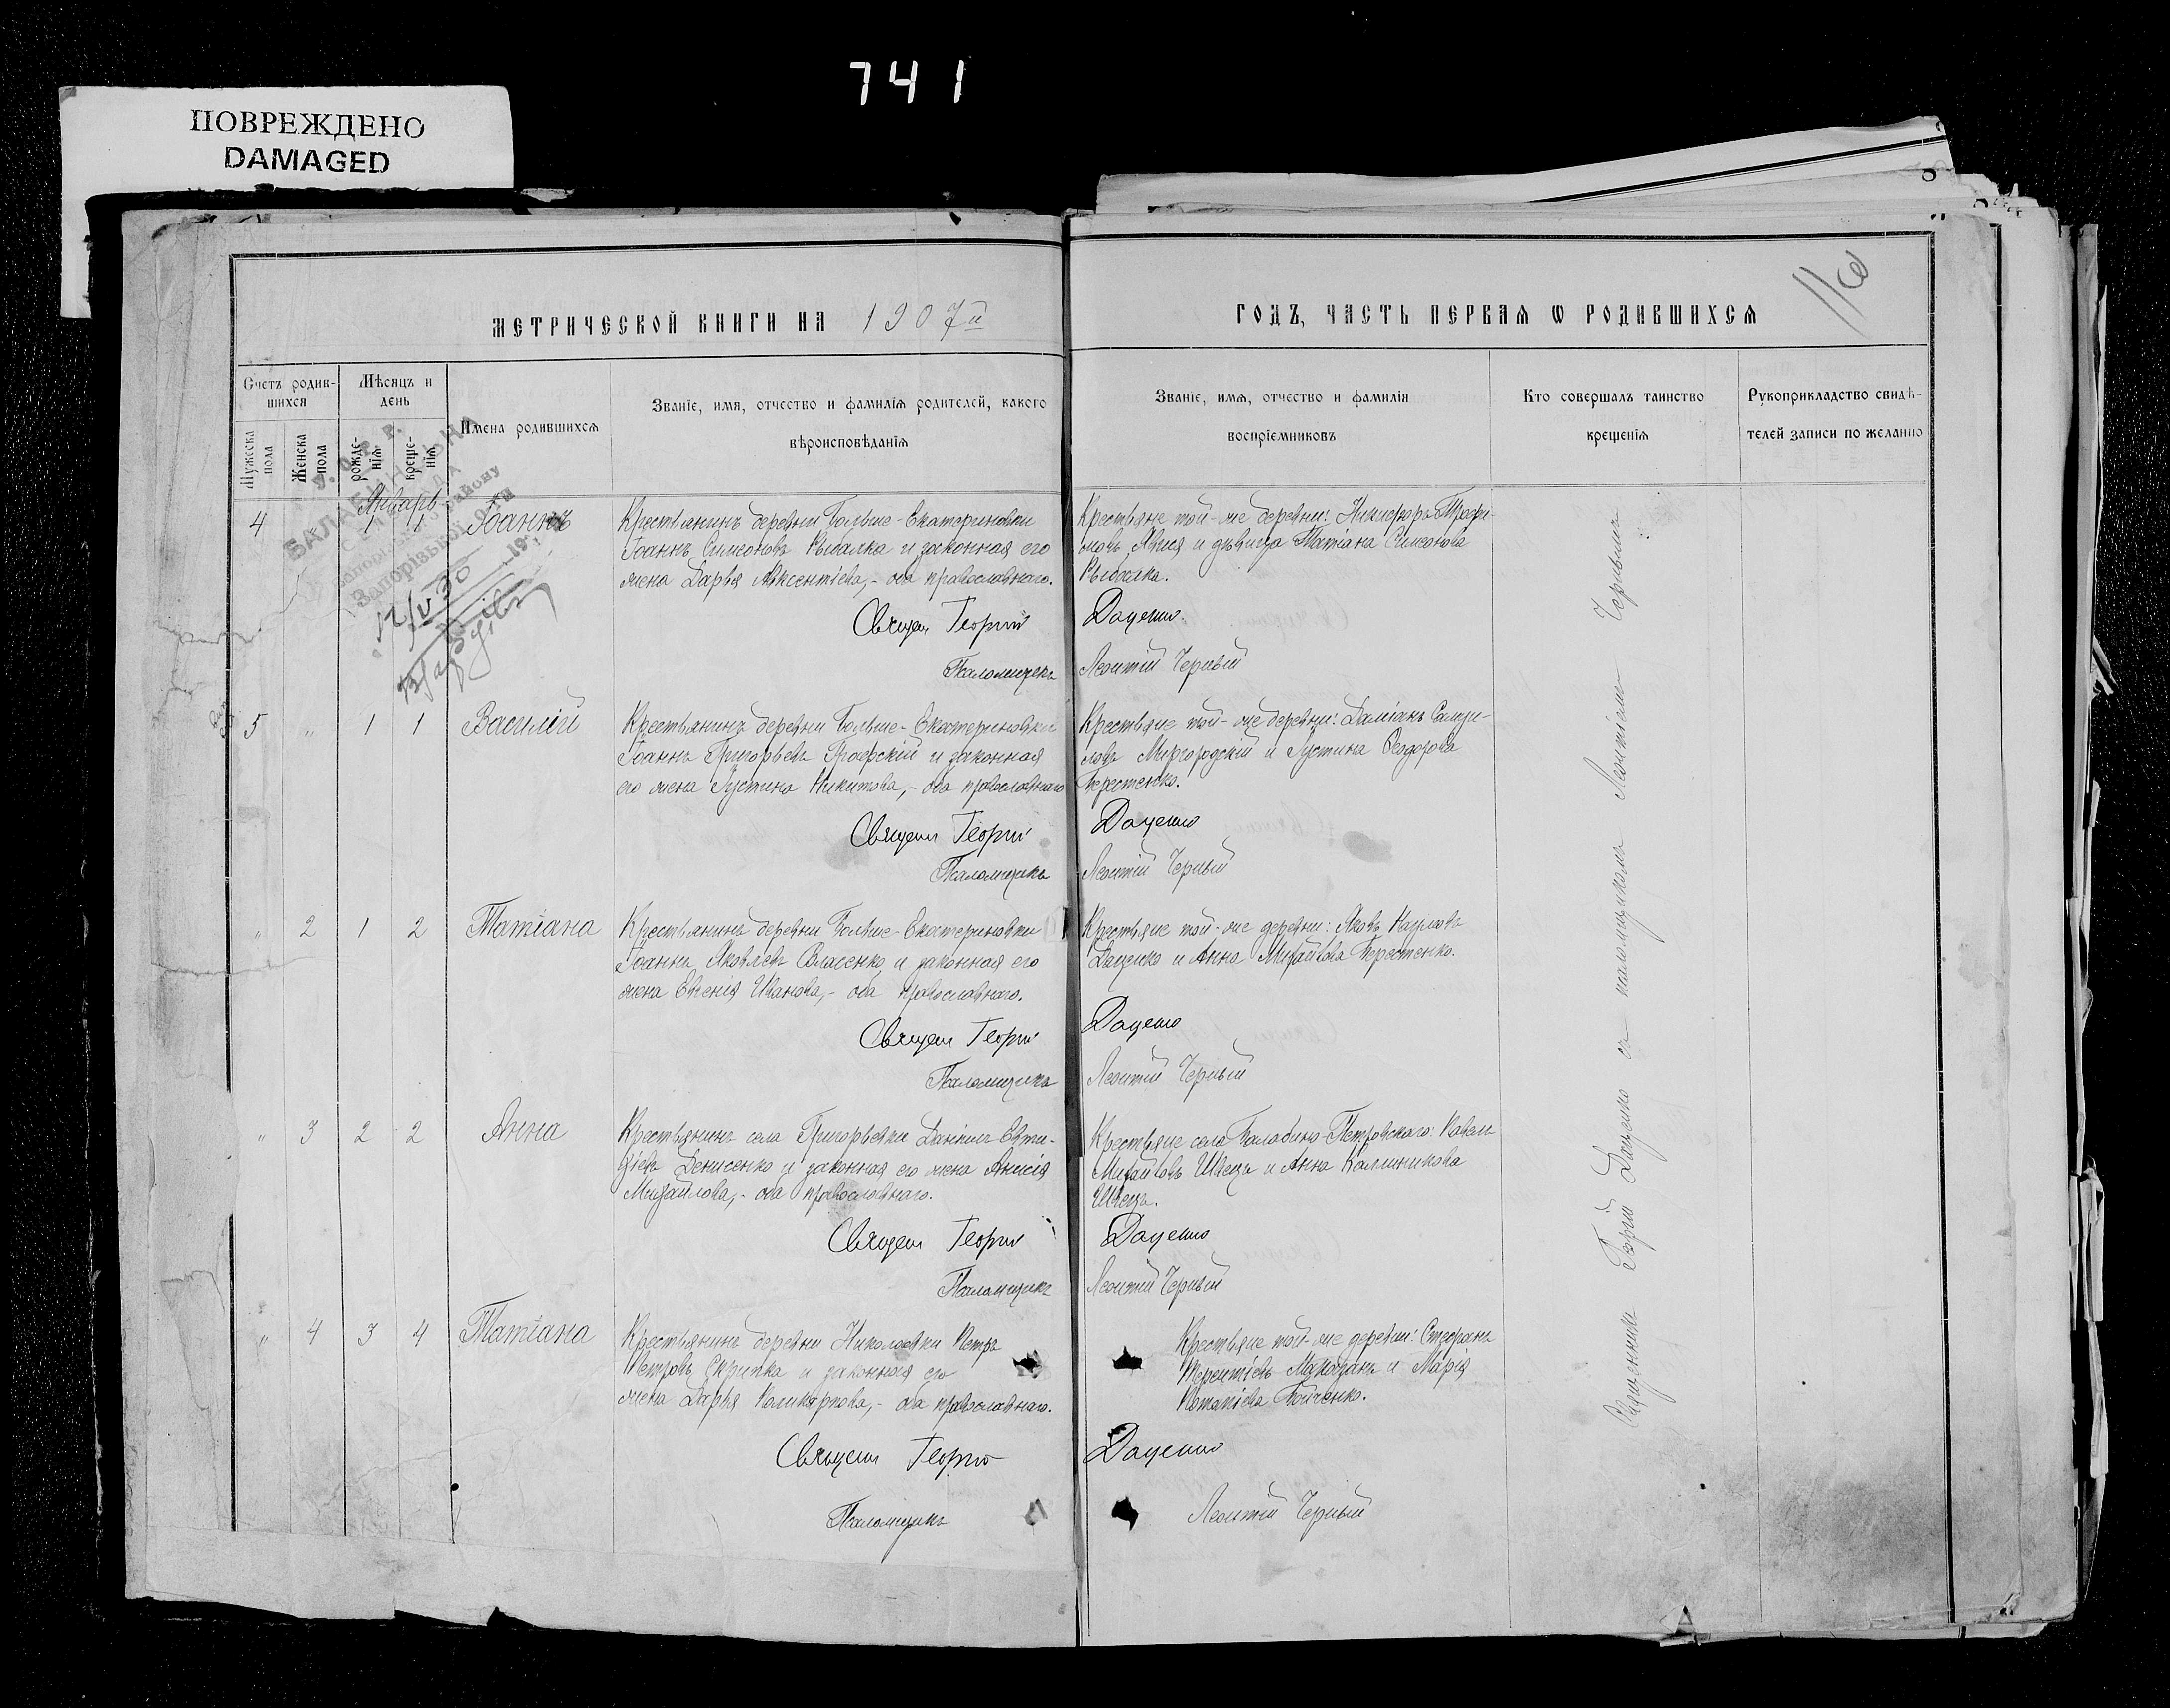 741
ПОВРЕЖДЕНО
DAMAGED
МЕТРИЧЕСКОЙ КНИГИ НА 1907й
ГОДЪ, ЧАСТЬ ПЕРВАЯ Ѡ РОДИВШИХСЯ
Счетъ родив-
шихся
Мужеска
пола
Женска
пола
Мѣсяцъ и
день
рожде-
нія
креще-
нія
Имена родившихся
Званіе, имя, отчество и фамилія родителей, какого
вѣроисповѣданія
Званіе, имя, отчество и фамилія
воспріемниковъ
Кто совершалъ таинство
крещенія
Рукоприкладство свидѣ-
телей записи по желанію
Январь
4 1 1 Іоаннъ
Крестьянинъ деревни Больше-Екатериновки
Іоаннъ Симеоновъ Рыбалка и законная его
жена Дарья Авксентіева,- оба православнаго.
Крестьяне той-же деревни: Никифоръ Трофи-
мовъ и дѣвица Татіана Симеонова
Рыбалка.
Священ Георгій Даценко.
Псаломщикъ Леонтій Черный
5 " 1 1 Василій
Крестьянинъ деревни Больше-Екатериновки
Іоаннъ Григорьевъ и законная
его жена Іустина Никитова,- оба православнаго
Крестьяне той-же деревни: Даміанъ Самуи-
ловъ Миргородскій и Іустина Ѳеодорова
Берестенко.
Священ Георгій Даценко
Псаломщикъ Леонтій Черный
" 2 1 2 Татіана
Крестьянинъ деревни Больше-Екатериновки
Іоаннъ Яковлевъ Власенко и законная его
жена Евгенія Иванова,- оба православнаго.
Крестьяне той-же деревни: Яковъ Наумовъ
Даценко и Анна Михайлова Берестенко.
Священ Георгій Даценко
Псаломщикъ Леонтій Черный
" 3 2 2 Анна
Крестьянинъ села Григорьевки Даніилъ Евти-
хіевъ Денисенко и законная его жена Анисія
Михайлова,- оба православнаго.
Крестьяне села Балабино-Петровскаго: Павелъ
Михайловъ Швецъ и Анна Каллиникова
Швецъ.
Священ Георгій Даценко
Псаломщикъ Леонтій Черный
" 4 3 4 Татіана
Крестьянинъ деревни Николаевки Петръ
Петровъ Скрипка и законная его
жена Дарья Поликарпова,- оба православнаго.
Крестьяне той-же деревни: Стефанъ
Терентіевъ и Марія
Потапіева Бойченко.
Священ Георгій Даценко
Псаломщикъ Леонтій Черный
Священникъ Георгій Даценко съ псаломщикомъ Леонтіемъ Чернымъ